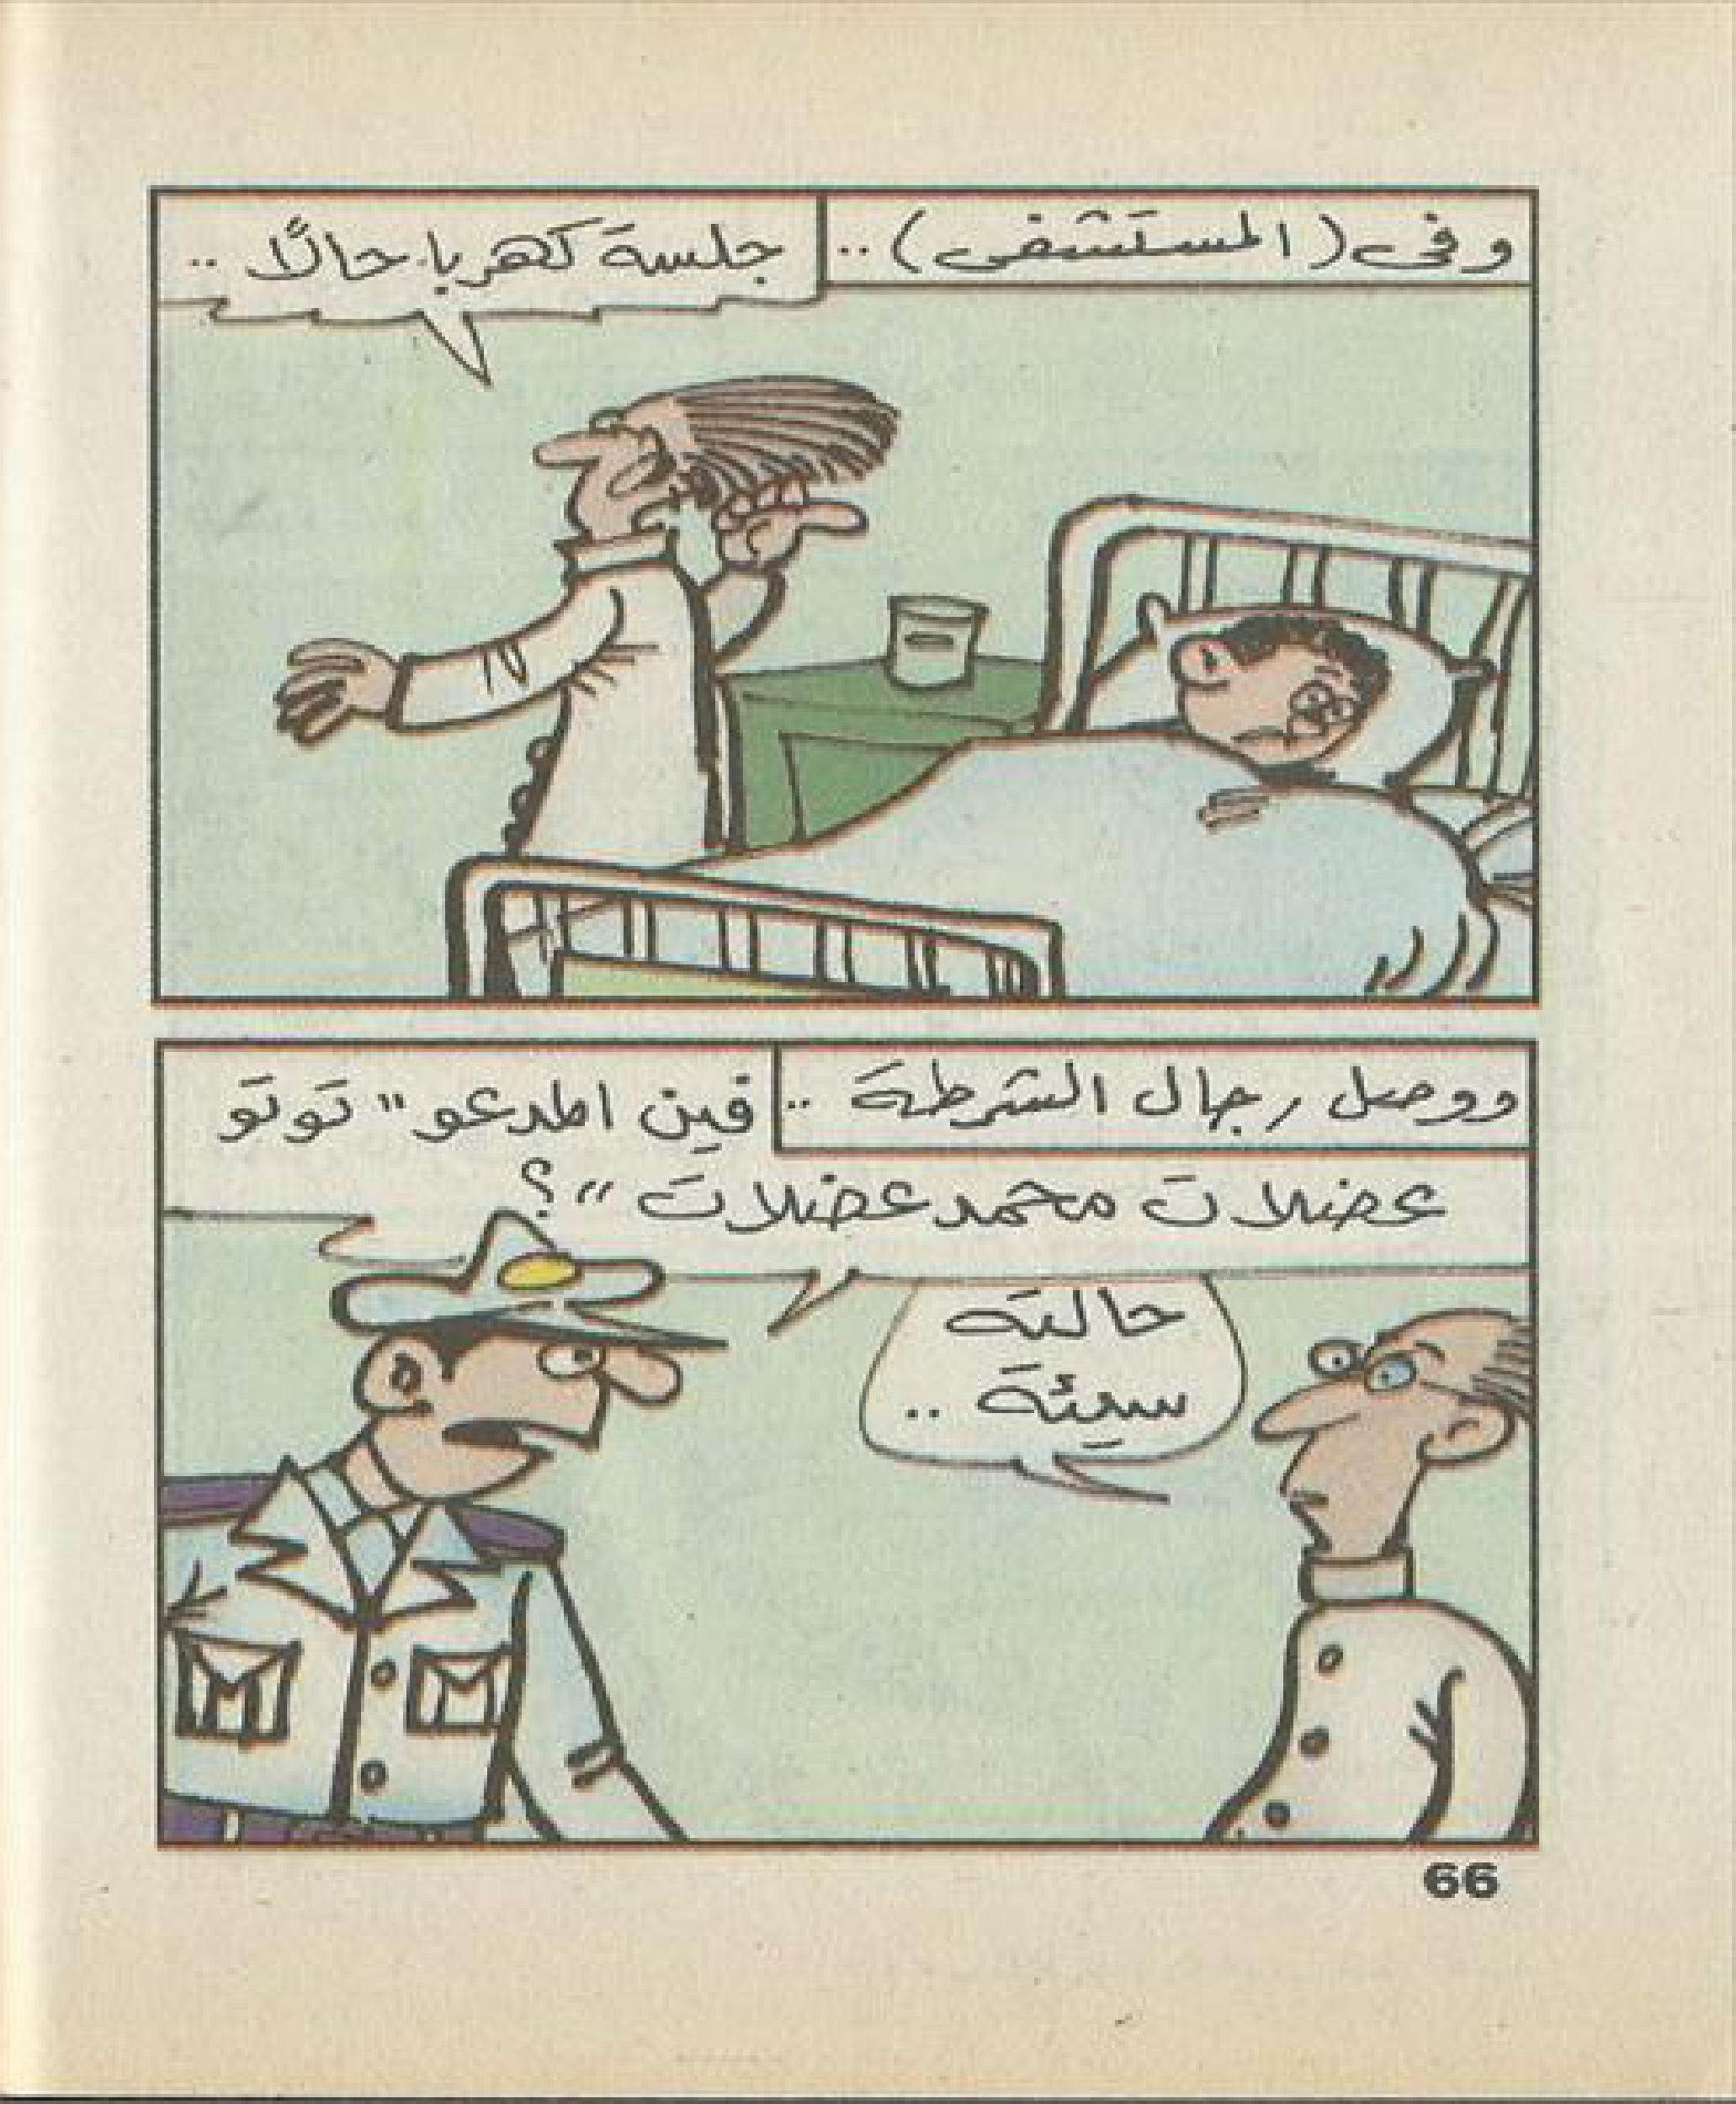 وفى (المستشفى) ..
جلسة كهربا حالًا ..
ووصل رجال الشرطة ..
فين المدعو "توتو
عضلات محمد عضلات"؟
حالته
سيئة ..
66